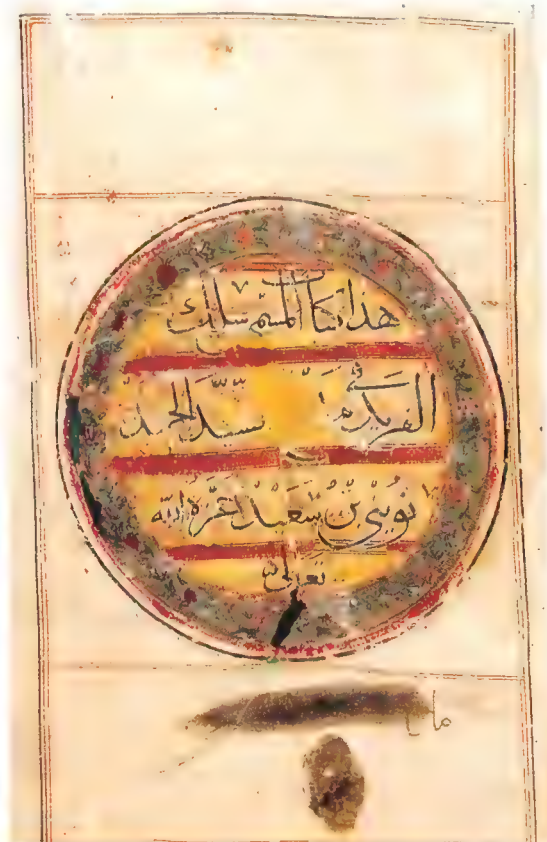 هذا كتاب المسمى سلك
الفريد مدح سيد الحميد
ثويني بن سعيد اعزه الله
تعالى